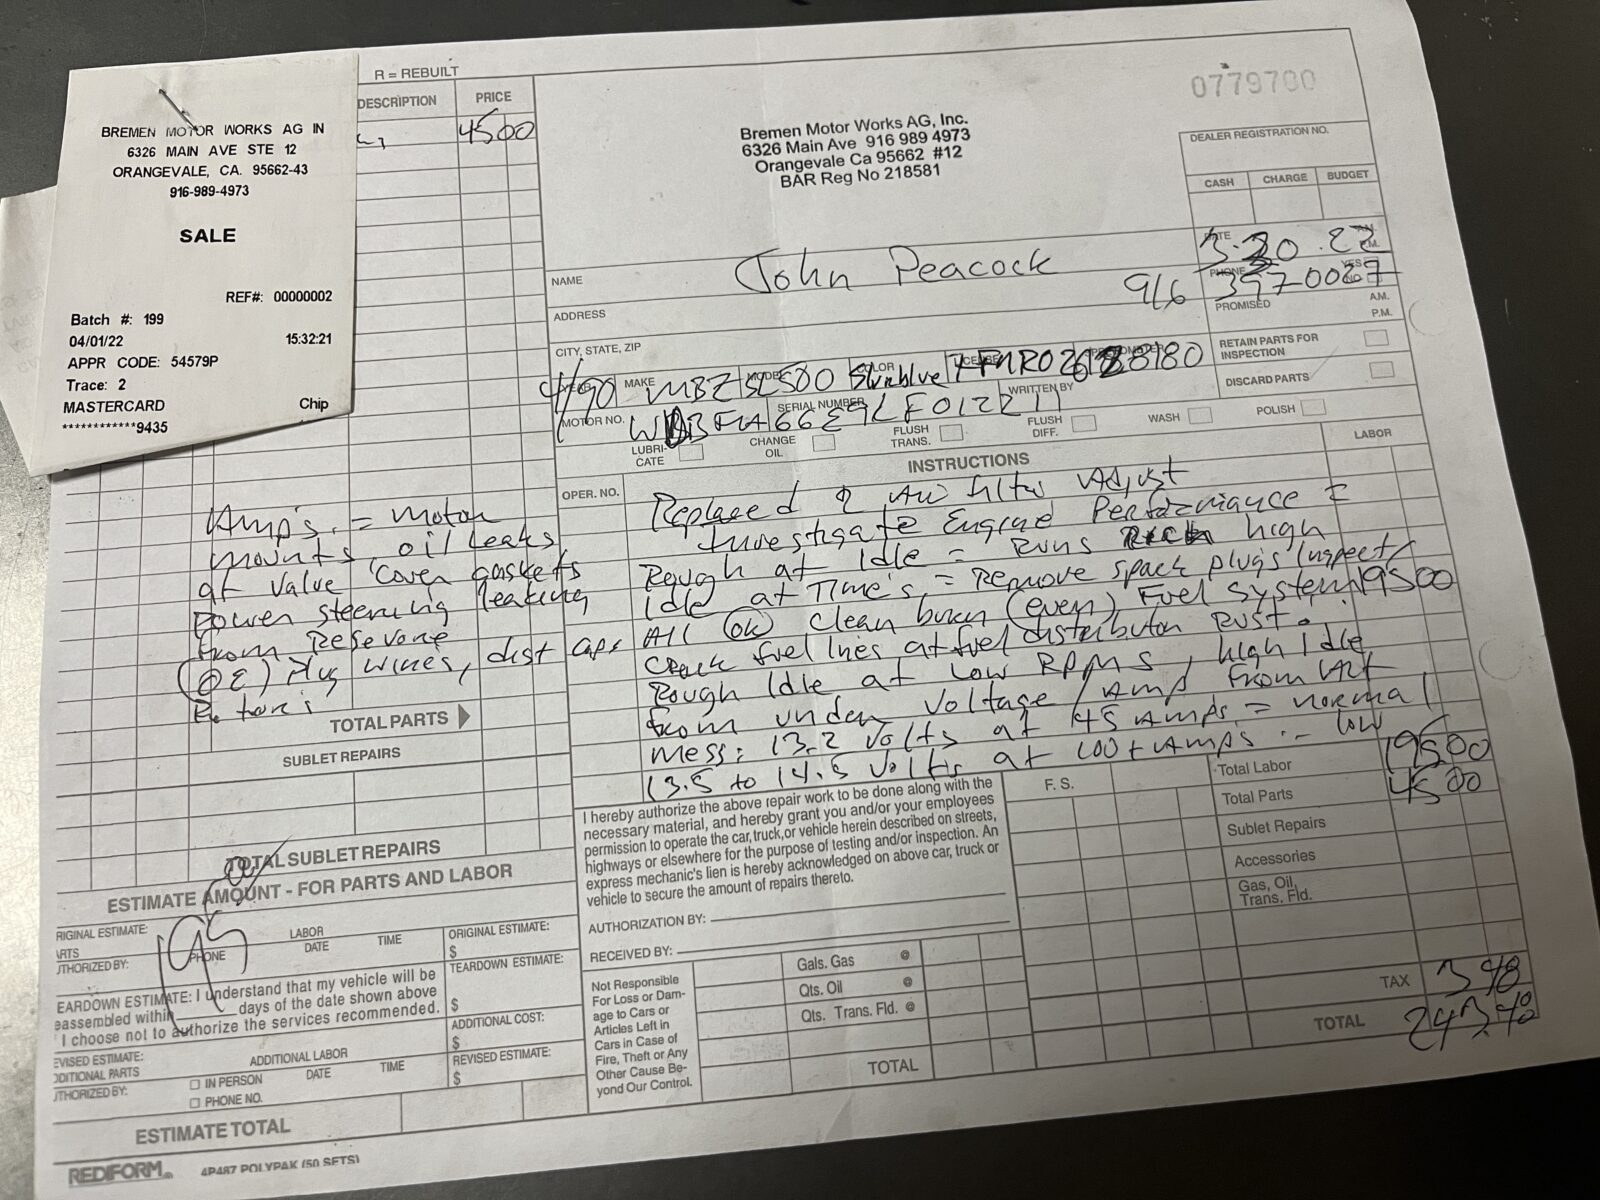 BREMEN MOTOR WORKS AG IN
6326 MAIN AVE STE 12
ORANGEVALE, CA. 95662-43
916-989-4973
SALE
REF#: 00000002
Batch #: 199
04/01/22 15:32:21
APPR CODE: 54579P
Trace: 2
MASTERCARD Chip
************9435
R = REBUILT
DESCRIPTION PRICE
4500
Amp's = motor
mounts, oil leaks
at valve cover gaskets
Power steering leaking
from Reservore
(OE) Plug wires, dist caps
TOTAL PARTS
SUBLET REPAIRS
TOTAL SUBLET REPAIRS
ESTIMATE AMOUNT - FOR PARTS AND LABOR
RIGINAL ESTIMATE:
ARTS LABOR
UTHORIZED BY: PHONE DATE TIME
195
ORIGINAL ESTIMATE:
$
EARDOWN ESTIMATE: I understand that my vehicle will be
eassembled within ______ days of the date shown above
I choose not to authorize the services recommended.
TEARDOWN ESTIMATE:
$
ADDITIONAL COST:
$
EVISED ESTIMATE:
DDITIONAL PARTS ADDITIONAL LABOR
UTHORIZED BY: IN PERSON DATE TIME
PHONE NO.
REVISED ESTIMATE:
$
ESTIMATE TOTAL
REDIFORM 4P487 POLYPAK (50 SETS)
0779700
Bremen Motor Works AG, Inc.
6326 Main Ave 916 989 4973
Orangevale Ca 95662 #12
BAR Reg No 218581
DEALER REGISTRATION NO.
CASH CHARGE BUDGET
NAME John Peacock
DATE 3.30.22 A.M. P.M.
PHONE 916 397-0027 YES NO
ADDRESS
PROMISED A.M. P.M.
CITY, STATE, ZIP
RETAIN PARTS FOR INSPECTION
4/90 MAKE MBZ MODEL SL500 COLOR LICENSE
DISCARD PARTS
MOTOR NO. SERIAL NUMBER WRITTEN BY
LUBRI-CATE CHANGE OIL FLUSH TRANS. FLUSH DIFF. WASH POLISH
OPER. NO. INSTRUCTIONS LABOR
Replaced 2 Air filter Adjust
Investigate Engine Performance =
Rough at Idle = Runs high
Idle at Time's = Remove spark plugs Inspect/
All (OK) clean burn (even) Fuel System 19500
Check fuel lines at fuel distributor Rust.
Rough Idle at Low RPMS, high Idle
from under Voltage / Amp from Alt
mess: 13.2 Volts at 45 Amps = normal
13.5 to 14.5 Volts at 100+ Amps :- low
I hereby authorize the above repair work to be done along with the
necessary material, and hereby grant you and/or your employees
permission to operate the car, truck, or vehicle herein described on streets,
highways or elsewhere for the purpose of testing and/or inspection. An
express mechanic's lien is hereby acknowledged on above car, truck or
vehicle to secure the amount of repairs thereto.
AUTHORIZATION BY:
RECEIVED BY:
Not Responsible
For Loss or Dam-
age to Cars or
Articles Left in
Cars in Case of
Fire, Theft or Any
Other Cause Be-
yond Our Control.
Gals. Gas @
Qts. Oil @
Qts. Trans. Fld. @
TOTAL
F. S.
Total Labor 19500
Total Parts 4500
Sublet Repairs
Accessories
Gas, Oil,
Trans. Fld.
TAX 3 48
TOTAL 243.48